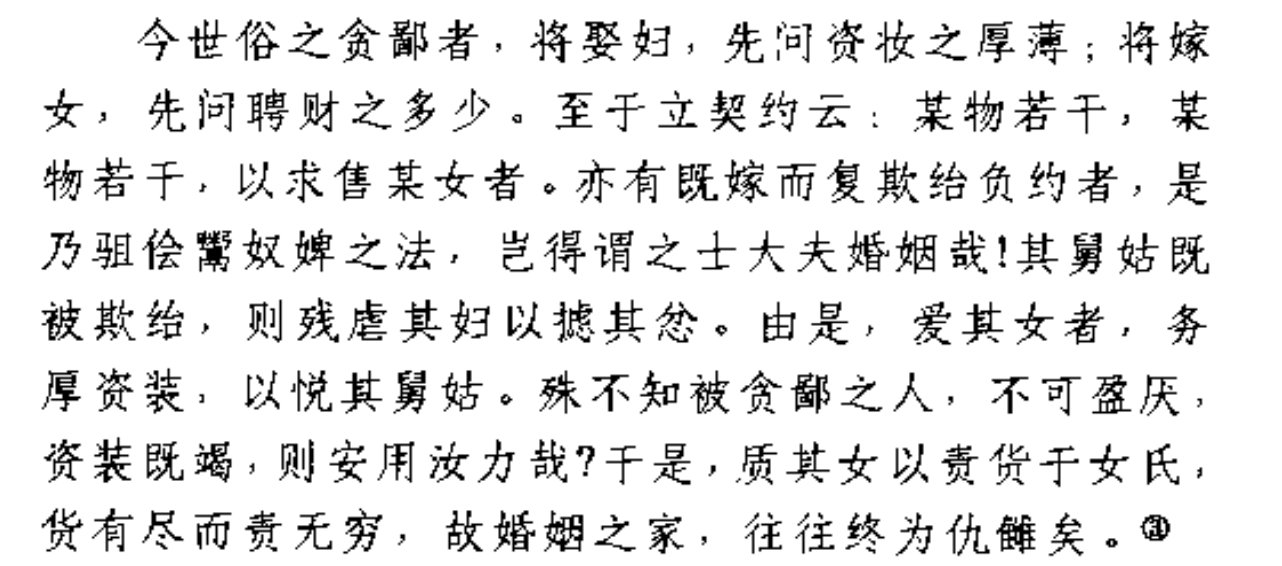 今世俗之贪鄙者，将娶妇，先问资妆之厚薄；将嫁
女，先问聘财之多少。至于立契约云：某物若干，某
物若干，以求售某女者。亦有既嫁而复欺绐负约者，是
乃驵侩鬻奴婢之法，岂得谓之士大夫婚姻哉!其舅姑既
被欺绐，则残虐其妇以摅其忿。由是，爱其女者，务
厚资装，以悦其舅姑。殊不知被贪鄙之人，不可盈厌，
资装既竭，则安用汝力哉?于是，质其女以责货于女氏，
货有尽而责无穷，故婚姻之家，往往终为仇雠矣。